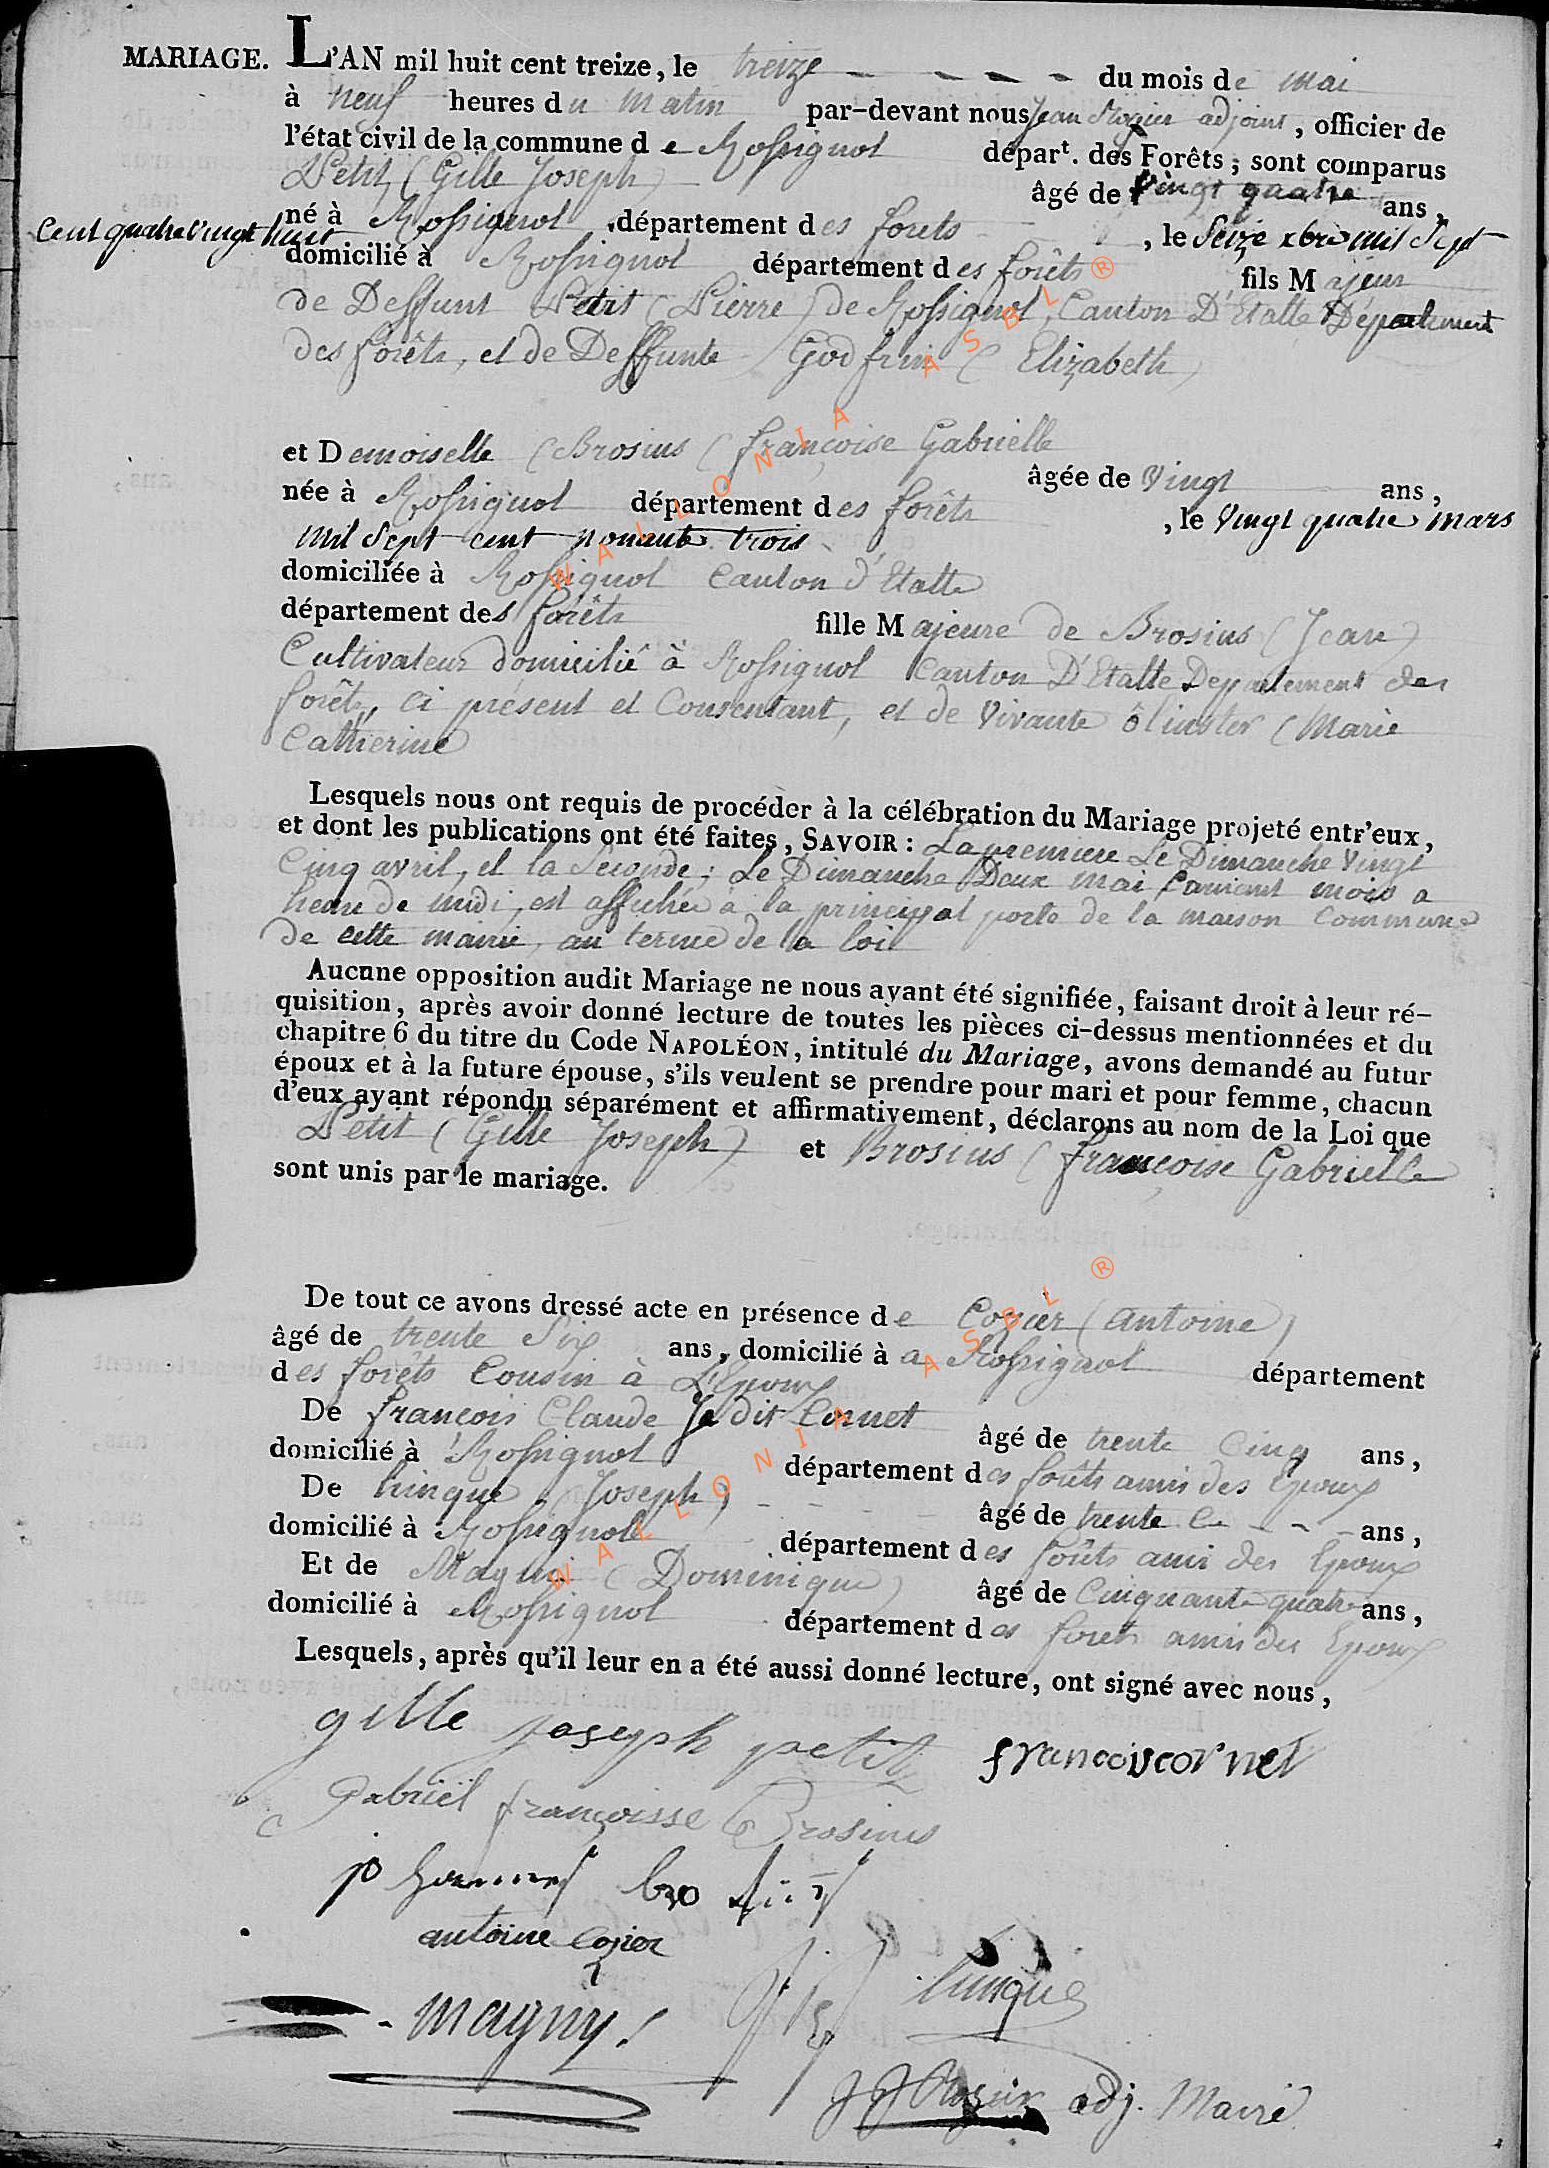 MARIAGE. L'AN mil huit cent treize, le treize du mois de mai
à neuf heures du matin par-devant nous Jean Rogier adjoint, officier de
l'état civil de la commune de Rossignol départ. des Forêts; sont comparus
Petit (Gille Joseph) âgé de vingt quatre ans,
né à Rossignol département des forets, le Seize xbre mil Sept
Cent quatre vingt huit
domicilié à Rossignol département des forêts fils Majeur
de Deffunt Petit (Pierre) de Rossignol, Canton D'Etalle Département
des forêts, et de Deffunte Godfrin (Elizabeth)
et Demoiselle Brosius (françoise Gabrielle
âgée de vingt ans,
née à Rossignol département des forêts, le vingt quatre mars
mil Sept cent nonante trois
domiciliée à Rossignol Canton d'Etalle
département des forêts fille Majeure de Brosius (Jean)
Cultivateur domicilié à Rossignol Canton D'Etalle Departement des
forêts, ci présent et Consentant, et de vivante ôlinster (Marie
Catherine
Lesquels nous ont requis de procéder à la célébration du Mariage projeté entr'eux,
et dont les publications ont été faites, SAVOIR : La premiere Le Dimanche vingt
Cinq avril, et la Seconde; Le Dimanche Deux mai mois a
heure de midi, est affichée à la principal porte de la maison Commune
de cette mairie, au terme de la loi
Aucune opposition audit Mariage ne nous ayant été signifiée, faisant droit à leur ré-
quisition, après avoir donné lecture de toutes les pièces ci-dessus mentionnées et du
chapitre 6 du titre du Code NAPOLÉON, intitulé du Mariage, avons demandé au futur
époux et à la future épouse, s'ils veulent se prendre pour mari et pour femme, chacun
d'eux ayant répondu séparément et affirmativement, déclarons au nom de la Loi que
Petit (Gille Joseph) et Brosius (françoise Gabrielle
sont unis par le mariage.
De tout ce avons dressé acte en présence de Cozier (Antoine)
âgé de trente Six ans, domicilié à a Rossignol département
des forêts Cousin à L'Epoux
De françois Claude Je dit Cornet âgé de trente Cinq ans,
domicilié à Rossignol département des forêts amis des Epoux
De hinque (Joseph) âgé de trente ans,
domicilié à Rossignol département des forêts ami des Epoux
Et de Magni (Dominique) âgé de Cinquante quatre ans,
domicilié à Rossignol département des forets amis des Epoux
Lesquels, après qu'il leur en a été aussi donné lecture, ont signé avec nous,
gille joseph petit
francois cornet
Gabriël françoisse Brosius
antoine cozier
hinque
magny
JJ Rogier adj. Maire
WALLONIA ASBL ®
WALLONIA ASBL ®